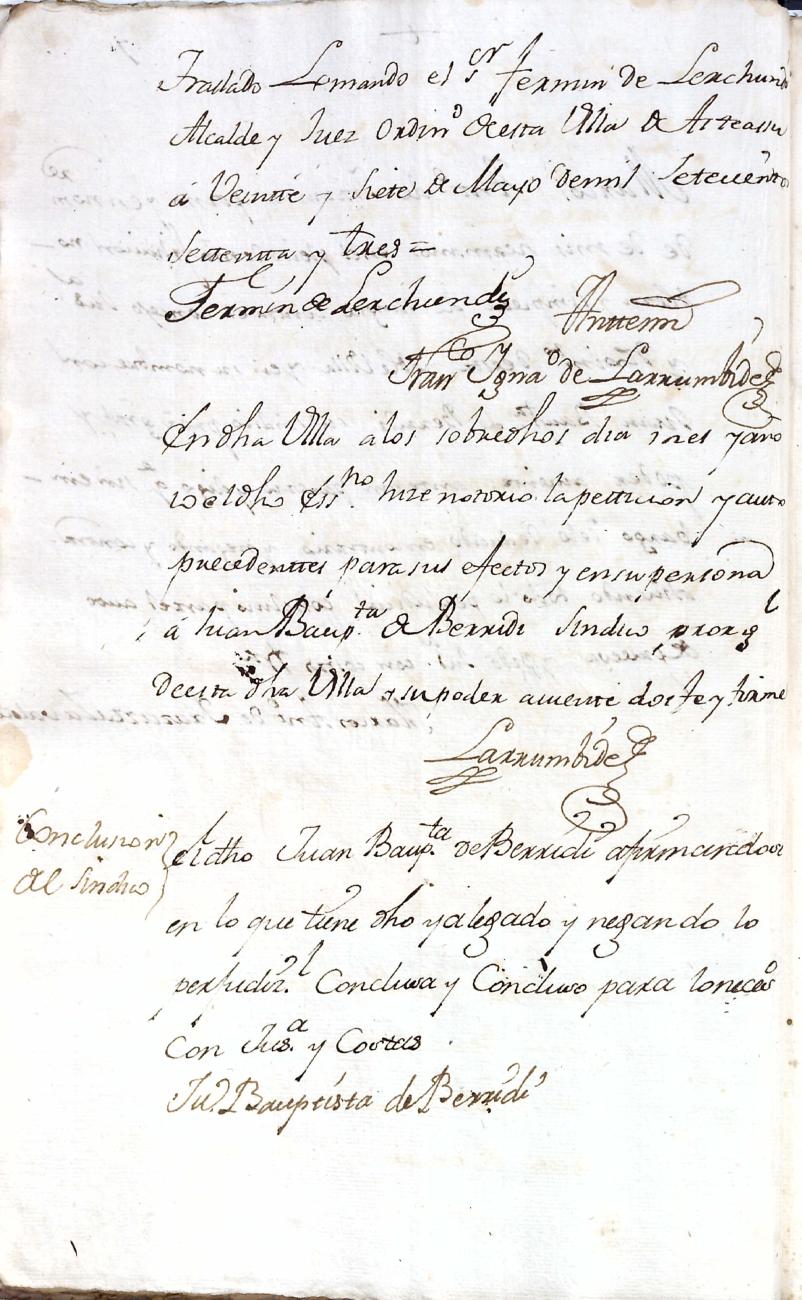 Traslado Lo mando el Sor Fermin de Lerchundi
Alcalde y Juez Ordino de esta Villa de Asteassu
á Veintte y Siete de Mayo de mil Setecientos
Settentta y tres =
Fermin de Lerchundi
Antte mi
Franco Ygnao de Larrumbide
En dha Villa a los sobredhos dia mes y año
io el dho Essno hize notorio la pettizion y auto
precedenttes para sus efectos y en su persona
á Juan Baupta de Berridi Sindico procr Gl
de esta dha Villa y su poder aviente doi fe y firme
Larrumbide
Conclusion
del Sindico
el dho Juan Baupta de Berridi afirmandose
en lo que tiene dho y alegado y negando lo
perjudizl Concluia y Concluio para lo necesº
Con Jusa y Costas
Jun Bauptista de Berridi